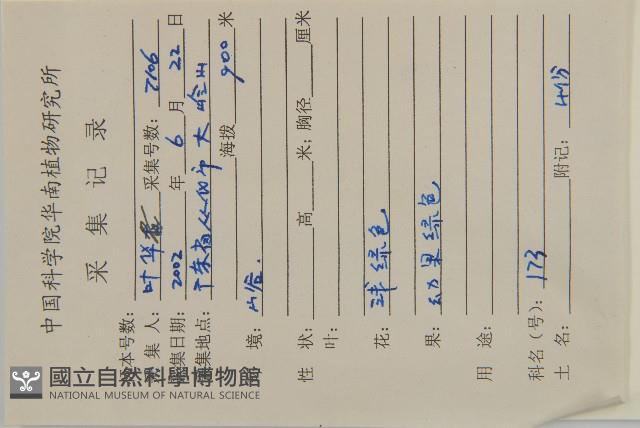 中国科学院华南植物研究所
采集记录
本号数:
集人: 叶华谷 采集号数: 2106
集日期: 2002年6月22日
集地点: 广东省从化市大岭山
海拨 900 米
境: 山谷.
性状: 高 米; 胸径 厘米
叶:
花: 球绿色
果: 幼果绿色
用途:
科名(号): 173
土名: 附记: 4份
國立自然科學博物館
NATIONAL MUSEUM OF NATURAL SCIENCE